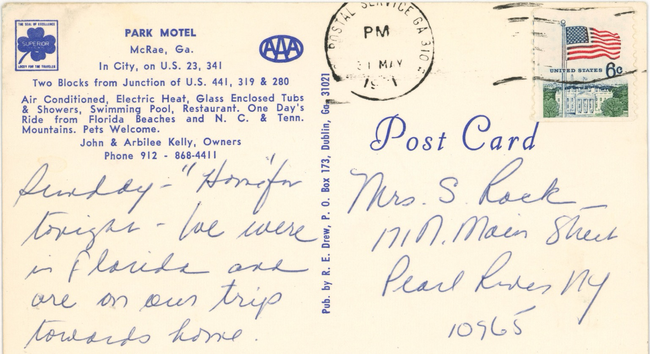 THE SEAL OF EXCELLENCE
SUPERIOR
PARK MOTEL
McRae, Ga.
In City, on U.S. 23, 341
AAA
Two Blocks from Junction of U.S. 441, 319 & 280
Air Conditioned, Electric Heat, Glass Enclosed Tubs
& Showers, Swimming Pool, Restaurant. One Day's
Ride from Florida Beaches and N. C. & Tenn.
Mountains. Pets Welcome.
John & Arbilee Kelly, Owners
Phone 912 - 868-4411
Sunday - "Home" for
tonight - We were
in Florida and
are on our trip
towards home.
Pub. by R. E. Drew, P. O. Box 173, Dublin, Ga. 31021
POSTAL SERVICE GA 310
PM
31 MAY
UNITED STATES 6c
Post Card
Mrs. S. Rock
171 N. Main Street
Pearl River NY
10965